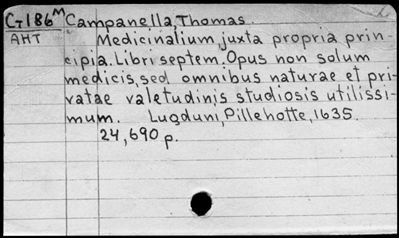 G186M Campanella, Thomas.
AHT Medicinalium juxta propria prin-
cipia. Libri septem. Opus non solum
medicis, sed omnibus naturae et pri-
vatae valetudinis studiosis utilissi-
mum. Lugduni, Pillehotte, 1635.
24, 690 p.